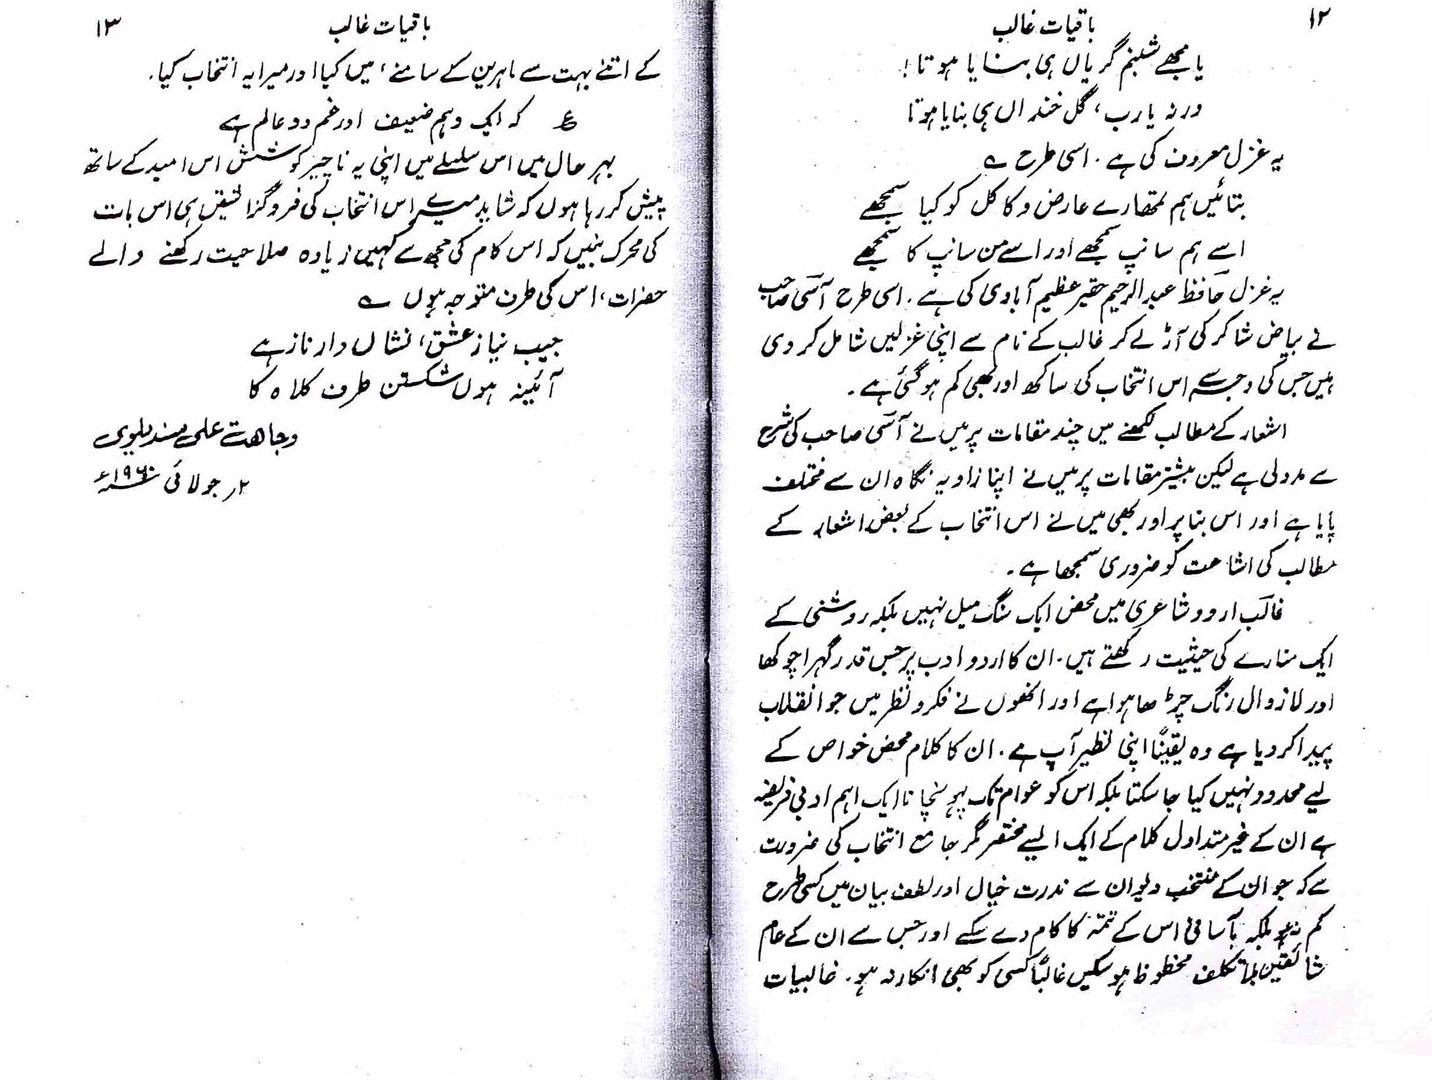 ۱۲
باقیات غالب
یا مجھے شبنم گریاں ہی بنایا ہوتا!
ورنہ یارب، گل خنداں ہی بنایا ہوتا
یہ غزل معروف کی ہے۔ اسی طرح ے
بتائیں ہم تمھارے عارض و کاکل کو کیا سمجھے
اسے ہم سانپ سمجھے اور اسے من سانپ کا سمجھے
یہ غزل حافظ عبدالرحیم حقیر عظیم آبادی کی ہے۔ اسی طرح آسی صاحب
نے بیاض شاکر کی آڑ لے کر غالب کے نام سے اپنی غزلیں شامل کردی
ہیں جس کی وجہ سے اس انتخاب کی ساکھ اور بھی کم ہوگئی ہے۔
اشعار کے مطالب لکھنے میں چند مقامات پر میں نے آسی صاحب کی شرح
سے مدد لی ہے لیکن بیشتر مقامات پر میں نے اپنا زاویہ نگاہ ان سے مختلف
پایا ہے اور اس بنا پر اور بھی میں نے اس انتخاب کے بعض اشعار کے
مطالب کی اشاعت کو ضروری سمجھا ہے۔
غالب اردو شاعری میں محض ایک سنگ میل نہیں بلکہ روشنی کے
ایک منارے کی حیثیت رکھتے ہیں۔ ان کا اردو ادب پر جس قدر گہرا چوکھا
اور لازوال رنگ چڑھا ہوا ہے اور انھوں نے فکر و نظر میں جو انقلاب
پیدا کردیا ہے وہ یقیناً اپنی نظیر آپ ہے۔ ان کا کلام محض خواص کے
لیے محدود نہیں کیا جاسکتا بلکہ اس کو عوام تک پہونچانا ایک اہم ادبی فریضہ
ہے ان کے غیر متداول کلام کے ایک ایسے مختصر مگر جامع انتخاب کی ضرورت
سے کہ جو ان کے منتخب دیوان سے ندرت خیال اور لطف بیان میں کسی طرح
کم نہ ہو بلکہ بآسانی اس کے تتمہ کا کام دے سکے اور جس سے ان کے عام
شائقین بلاتکلف محظوظ ہوسکیں غالباً کسی کو بھی انکار نہ ہو۔ غالبیات
باقیات غالب
۱۳
کے اتنے بہت سے ماہرین کے سامنے، میں کیا اور میرا یہ انتخاب کیا۔
ع کہ ایک وہم ضعیف اور غم دو عالم ہے
بہر حال میں اس سلسلے میں اپنی یہ ناچیز کوشش اس امید کے ساتھ
پیش کر رہا ہوں کہ شاید میرے اس انتخاب کی فروگزاشتیں ہی اس بات
کی محرک بنیں کہ اس کام کی مجھ سے کہیں زیادہ صلاحیت رکھنے والے
حضرات، اس کی طرف متوجہ ہوں ے
جیب نیاز عشق، نشاں دار ناز ہے
آئینہ ہوں شکستن طرف کلاہ کا
وجاهت علی سندیلوی
۲ر جولائی ۱۹۶۰ء